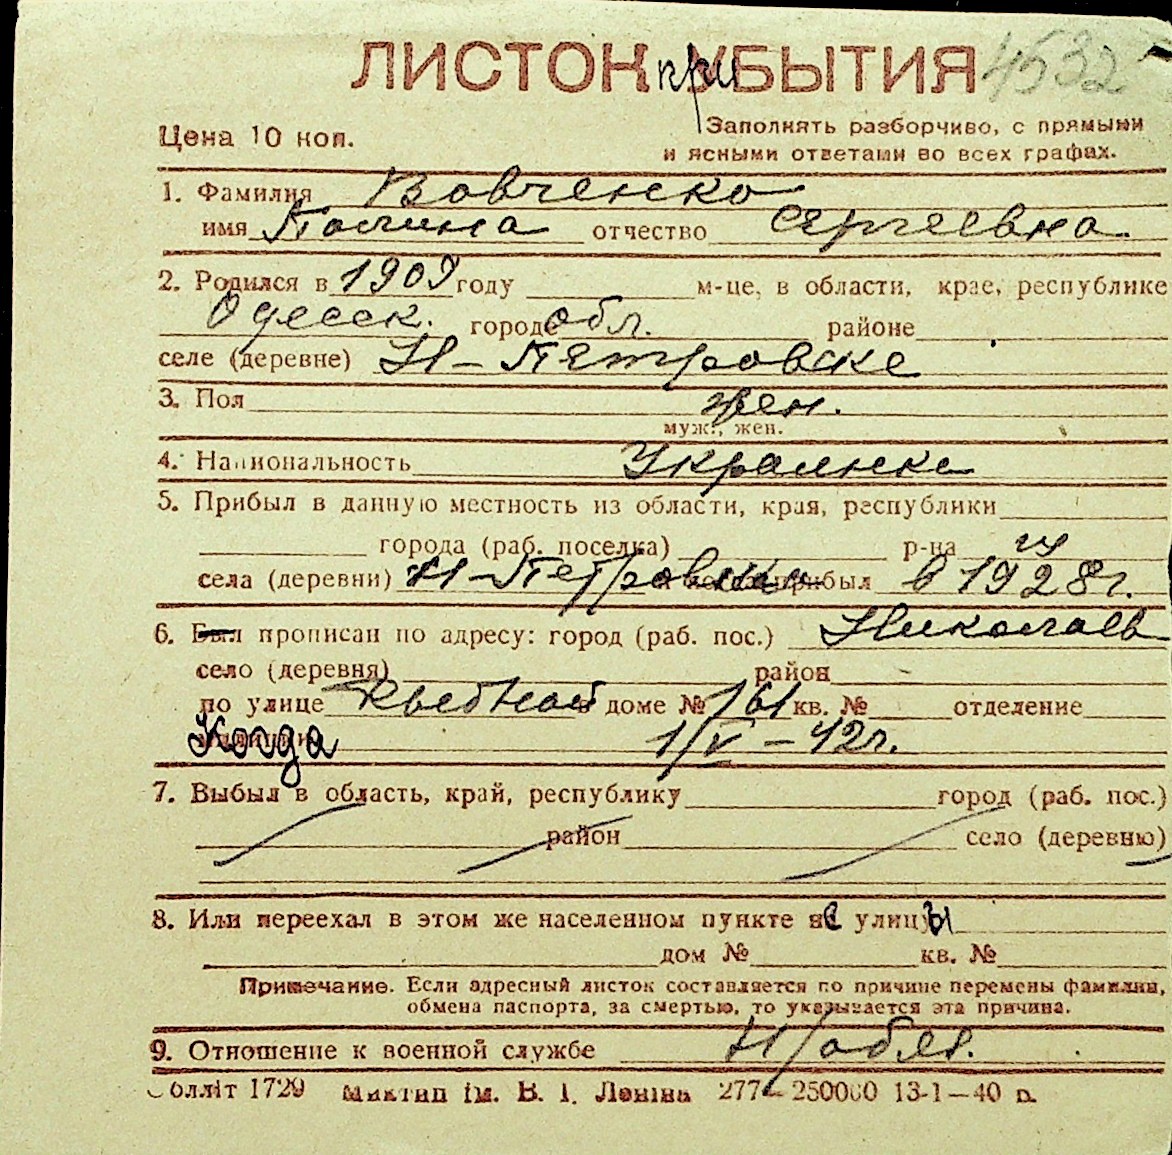 ЛИСТОК при УБЫТИЯ 4532
Цена 10 коп.
Заполнять разборчиво, с прямыми
и ясными ответами во всех графах.
1. Фамилия Вовченко
имя Полина отчество Сергеевна.
2. Родился в 1909 году м-це, в области, крае, республике
Одесск. городе обл. районе
селе (деревне) Н-Петровске
3. Пол жен.
муж., жен.
4. Национальность Украинка
5. Прибыл в данную местность из области, края, республики
города (раб. поселка) р-на из
села (деревни) Н-Петровки прибыл в 1928 г.
6. Был прописан по адресу: город (раб. пос.) Николаев
село (деревня) район
по улице в доме № 161 кв. № отделение
Когда 1/V-42г.
7. Выбыл в область, край, республику город (раб. пос.)
район село (деревню)
8. Или переехал в этом же населенном пункте с улицы
дом № кв. №
Примечание. Если адресный листок составляется по причине перемены фамилии,
обмена паспорта, за смертью, то указывается эта причина.
9. Отношение к военной службе Н/обяз.
Облліт 1729 Миктип ім. В. І. Леніна 277-250000 13-1-40 р.